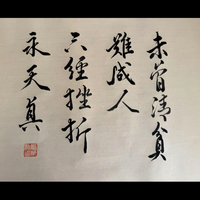 未曾清貧
難成人
不經挫折
永天真